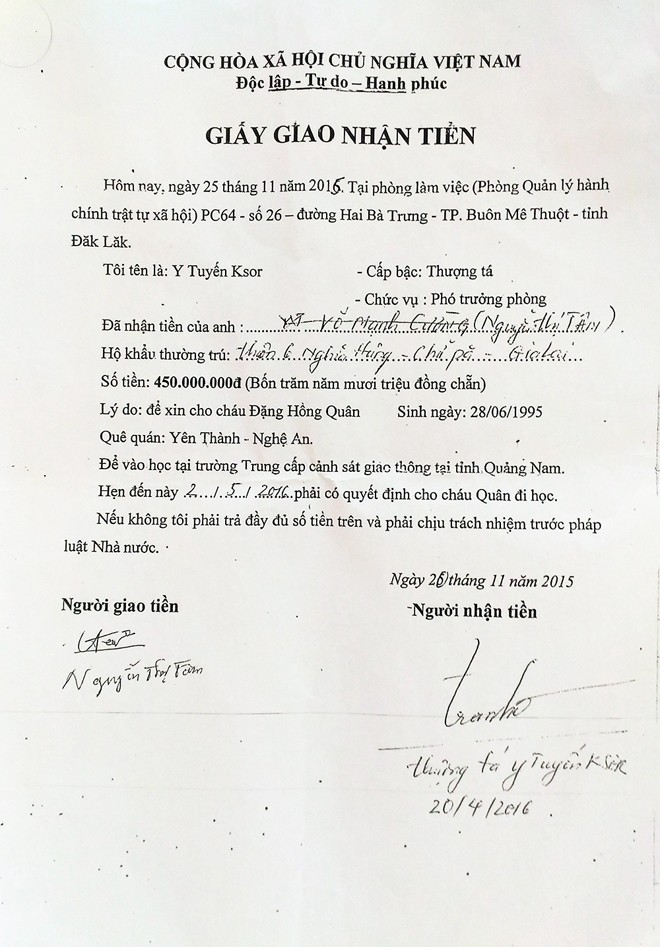 CỘNG HÒA XÃ HỘI CHỦ NGHĨA VIỆT NAM
Độc lập - Tự do – Hạnh phúc
GIẤY GIAO NHẬN TIỀN
Hôm nay, ngày 25 tháng 11 năm 2015. Tại phòng làm việc (Phòng Quản lý hành
chính trật tự xã hội) PC64 - số 26 – đường Hai Bà Trưng - TP. Buôn Mê Thuột - tỉnh
Đăk Lăk.
Tôi tên là: Y Tuyến Ksor - Cấp bậc: Thượng tá
- Chức vụ : Phó trưởng phòng
Đã nhận tiền của anh : Võ Mạnh Cường (Nguyễn Thị Tâm)
Hộ khẩu thường trú: Thôn 6 Nghĩa Hưng - Chư pă - Gia lai
Số tiền: 450.000.000đ (Bốn trăm năm mươi triệu đồng chẵn)
Lý do: để xin cho cháu Đặng Hồng Quân Sinh ngày: 28/06/1995
Quê quán: Yên Thành - Nghệ An.
Để vào học tại trường Trung cấp cảnh sát giao thông tại tỉnh Quảng Nam.
Hẹn đến này 2../.5./.2016.phải có quyết định cho cháu Quân đi học.
Nếu không tôi phải trả đầy đủ số tiền trên và phải chịu trách nhiệm trước pháp
luật Nhà nước.
Ngày 26 tháng 11 năm 2015
Người giao tiền Người nhận tiền
Nguyễn Thị Tâm
Thượng tá Y Tuyến KSOR
20/4/2016